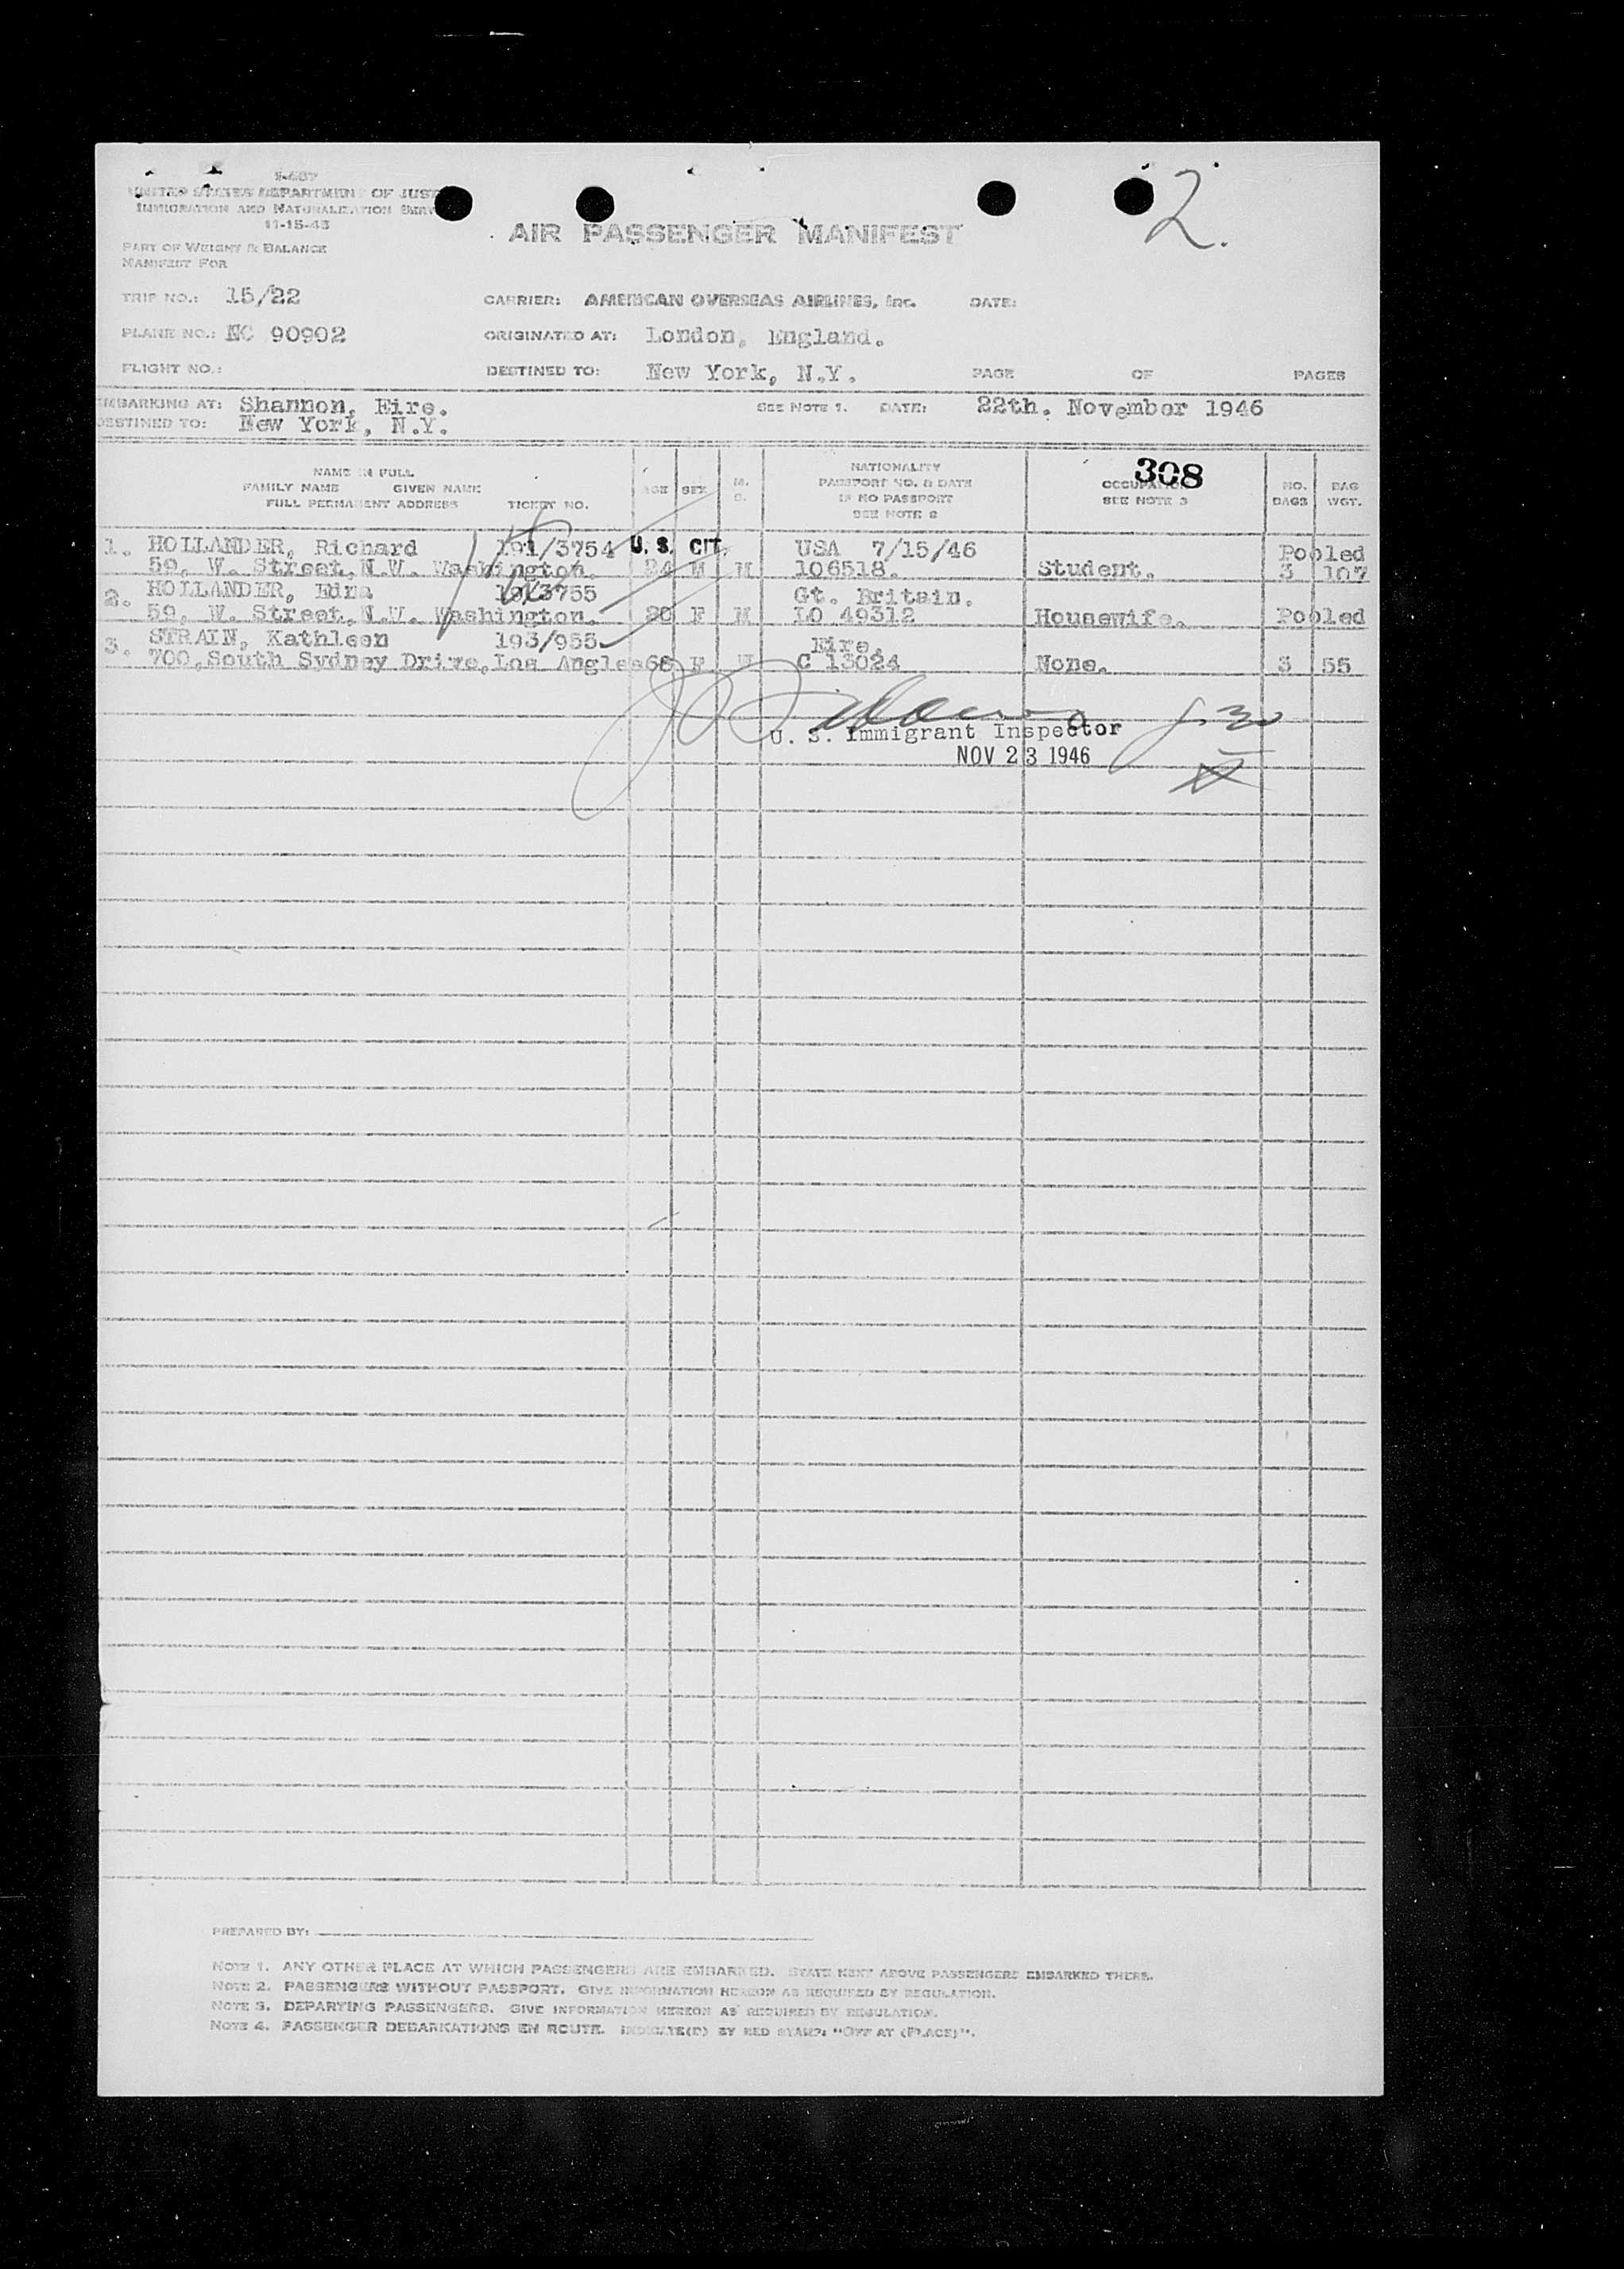 I-467
UNITED STATES DEPARTMENT OF JUST
IMMIGRATION AND NATURALIZATION SERV
11-15-43
2.
AIR PASSENGER MANIFEST
PART OF WEIGHT & BALANCE
MANIFEST FOR
TRIP NO.: 15/22 CARRIER: AMERICAN OVERSEAS AIRLINES, Inc. DATE:
PLANE NO.: NC 90902 ORIGINATED AT: London, England.
FLIGHT NO.: DESTINED TO: New York, N.Y. PAGE OF PAGES
EMBARKING AT: Shannon, Eire. SEE NOTE 1. DATE: 22th. November 1946
DESTINED TO: New York, N.Y.
NAME IN FULL
FAMILY NAME GIVEN NAME
FULL PERMANENT ADDRESS TICKET NO. AGE SEX M. S. NATIONALITY PASSPORT NO. & DATE IF NO PASSPORT SEE NOTE 2 308 OCCUPATION SEE NOTE 3 NO. BAGS BAG WGT.
1. HOLLANDER, Richard 191/3754 U. S. CIT. USA 7/15/46 Pooled
59, W. Street, N.W. Washington. 24 M M 106518. Student. 3 107
2. HOLLANDER, Edna 191/3755 Gt. Britain.
59, W. Street, N.W. Washington. 20 F M LO 49312 Housewife. Pooled
3. STRAIN, Kathleen 193/955 Eire.
700, South Sydney Drive, Los Angles 68 F W C 13024 None. 3 55
U. S. Immigrant Inspector
NOV 23 1946
PREPARED BY:
NOTE 1. ANY OTHER PLACE AT WHICH PASSENGERS ARE EMBARKED. STATE NEXT ABOVE PASSENGERS EMBARKED THERE.
NOTE 2. PASSENGERS WITHOUT PASSPORT. GIVE INFORMATION HEREON AS REQUIRED BY REGULATION.
NOTE 3. DEPARTING PASSENGERS. GIVE INFORMATION HEREON AS REQUIRED BY REGULATION.
NOTE 4. PASSENGER DEBARKATIONS EN ROUTE. INDICATE(D) BY RED STAMP: "OFF AT (PLACE)".